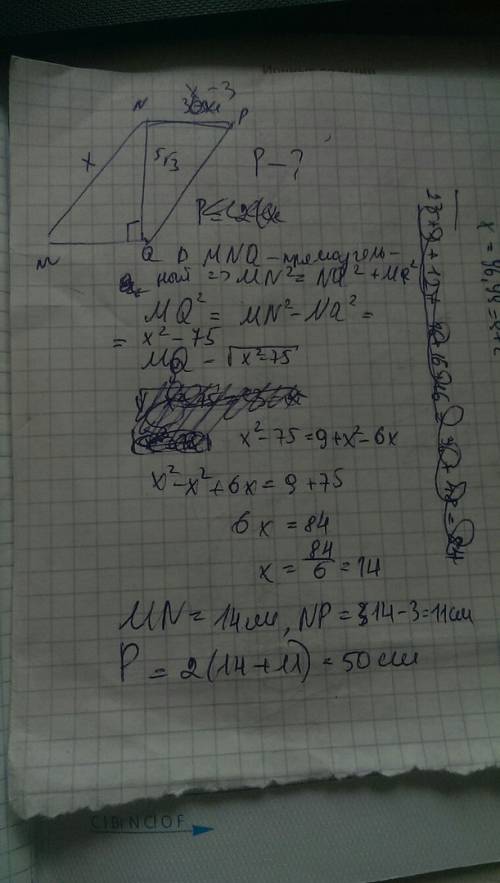 x-3
N
P
x
5√3
P-?
M
Q
Δ MNQ - прямоуголь-
ный => MN² = NQ² + MQ²
MQ² = MN² - NQ² =
= x² - 75
MQ - √x²-75
x²-75=9+x²-6x
x²-x²+6x=9+75
6x = 84
x = 84/6 = 14
MN = 14 см, NP = 14-3=11 см
P = 2(14+11) = 50 см
CIBINCIOF